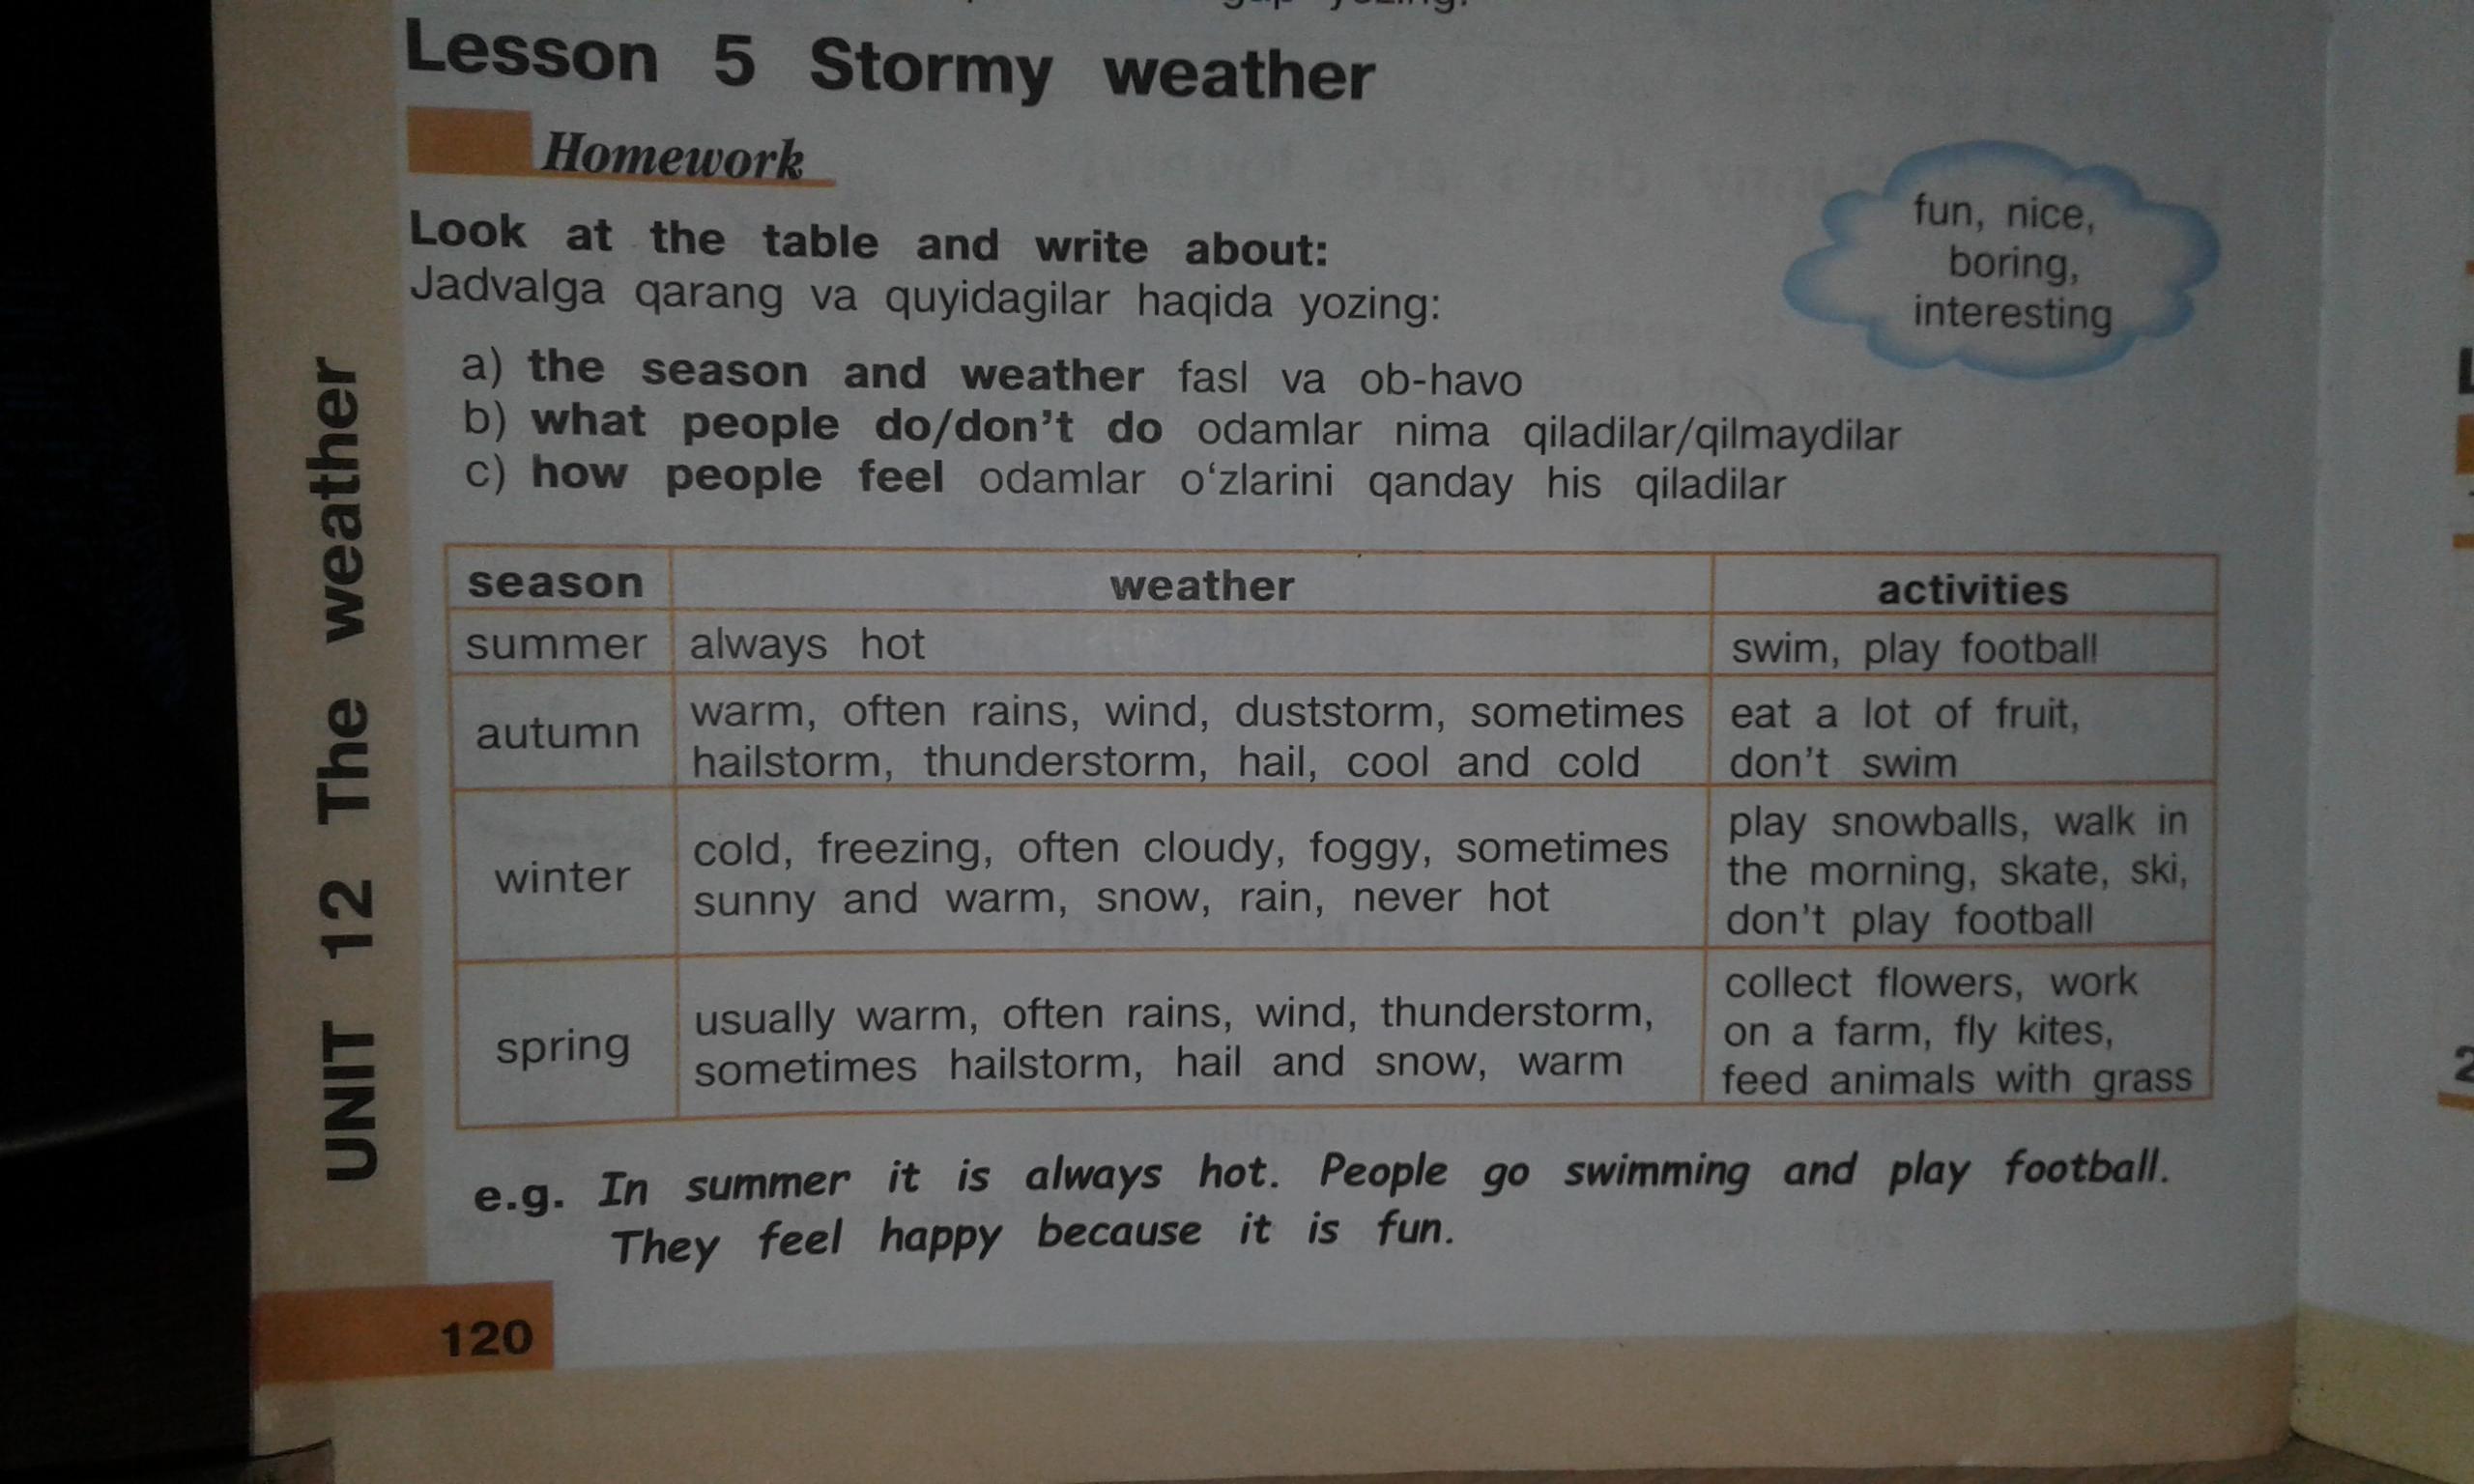 Lesson 5 Stormy weather
Homework
fun, nice,
boring,
interesting
Look at the table and write about:
Jadvalga qarang va quyidagilar haqida yozing:
a) the season and weather fasl va ob-havo
b) what people do/don't do odamlar nima qiladilar/qilmaydilar
c) how people feel odamlar o‘zlarini qanday his qiladilar
season weather activities
summer always hot swim, play football
autumn
warm, often rains, wind, duststorm, sometimes
hailstorm, thunderstorm, hail, cool and cold
eat a lot of fruit,
don't swim
winter
cold, freezing, often cloudy, foggy, sometimes
sunny and warm, snow, rain, never hot
play snowballs, walk in
the morning, skate, ski,
don't play football
spring
usually warm, often rains, wind, thunderstorm,
sometimes hailstorm, hail and snow, warm
collect flowers, work
on a farm, fly kites,
feed animals with grass
e.g. In summer it is always hot. People go swimming and play football.
They feel happy because it is fun.
UNIT 12 The weather
120